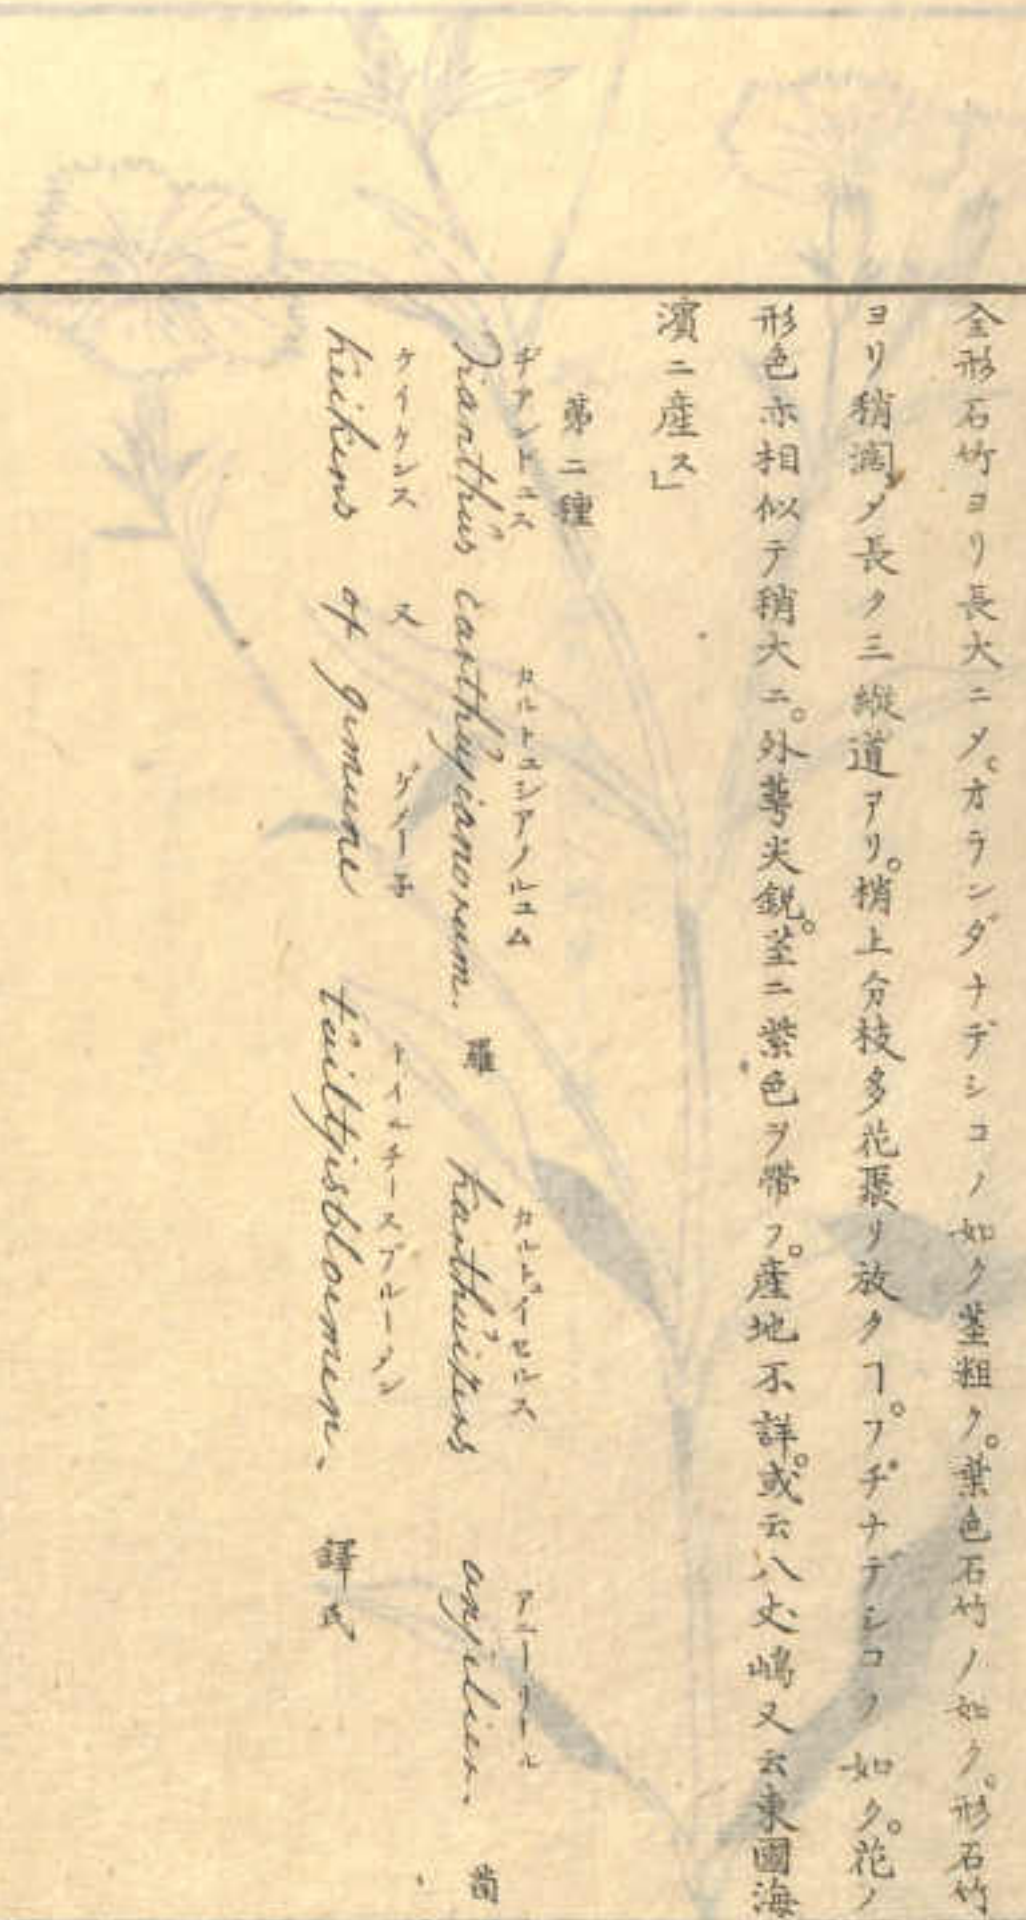 全形石竹ヨリ長大ニメ。オランダナデシコノ如ク茎粗ク。葉色石竹ノ如ク。形石竹
ヨリ稍濶メ長ク三縦道アリ。梢上分枝多花聚リ放クヿ。フヂナデシコノ如ク。花ノ
形色亦相似テ稍大ニ。外萼尖鋭。茎ニ紫色ヲ帶フ。産地不詳。或云八丈嶋又云東國海
濱ニ産ス」
第二種
ヂアントユス カルトユシアノルユム カルトイセルス アニーリール
Dianthus carthusianorum. 羅 karthuisers anjelier. 蘭
ケイケンス 又 ゲメー子 トイルチースブルーメン
kuikens of gemeene tuiltjisbloemen. 譯氏